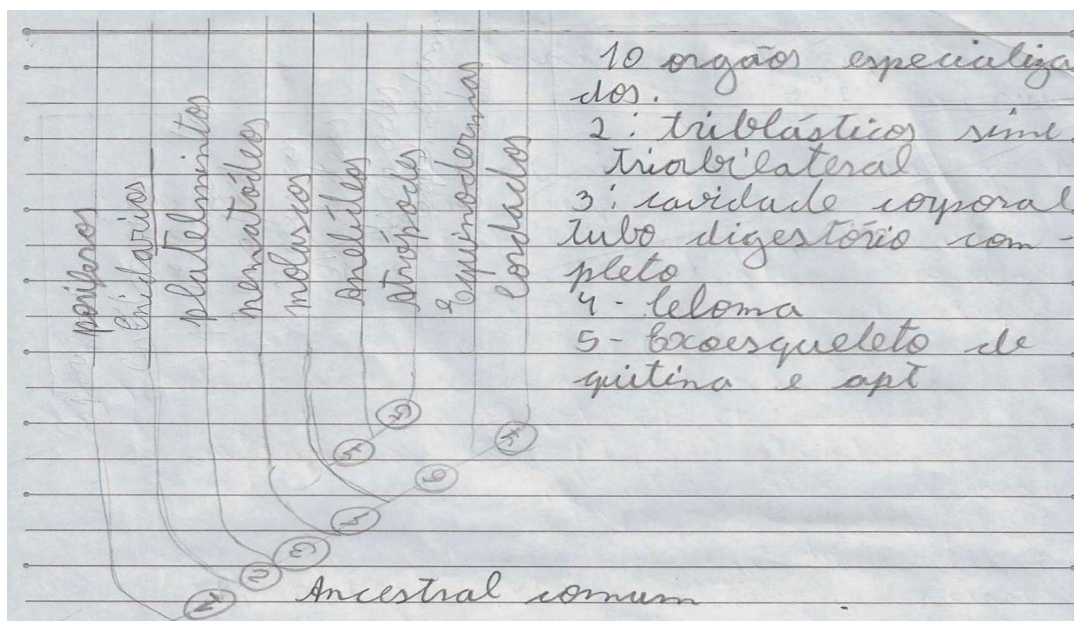 poríferos
Cnidarios
platelmintos
nematódeos
moluscos
Anelídeos
Atrópodes
Equinodermas
Cordados
10 orgãos especializa
dos.
2: triblásticos sime
triabilateral
3: cavidade corporal
tubo digestório com-
pleto
4- Celoma
5- Exoesqueleto de
quitina e apt
2
3
6
Ancestral comum